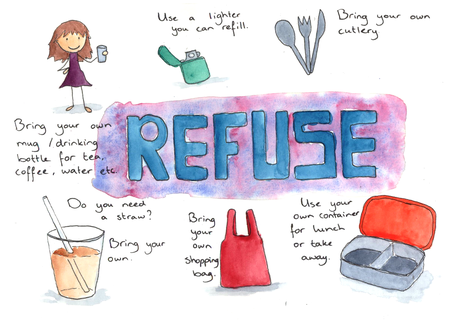 Use a lighter
you can refill.
Bring your own
cutlery
Bring your own
mug / drinking
bottle for tea,
coffee, water etc.
REFUSE
Do you need
a straw?
Bring your
own.
Bring
your
own
shopping
bag.
Use your
own container
for lunch
or take
away.